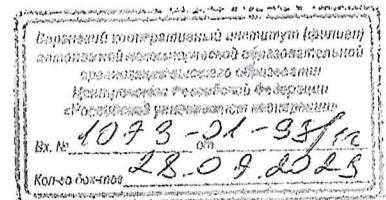 Саранский кооперативный институт (филиал)
автономной некоммерческой образовательной
организации высшего образования
Центросоюза Российской Федерации
«Российский университет кооперации»
Вх. № 1073-01-93/ от
28.07.2023
Кол-во док-тов